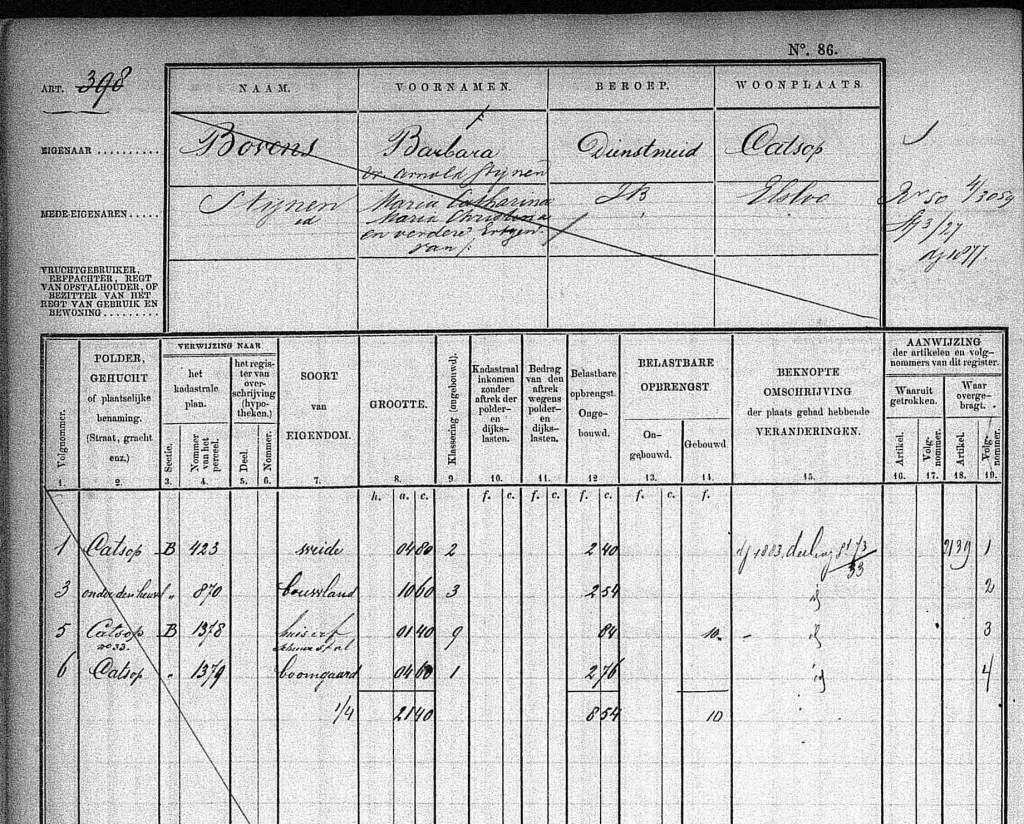 Nº. 86.
ART. 398
NAAM. VOORNAMEN. BEROEP. WOONPLAATS.
EIGENAAR .......... Bovens Barbara Dienstmeid Catsop
ex Arnold Stijnen
MEDE-EIGENAREN..... Stijnen Maria Catharina Elsloo
id Maria Christina
en verdere Erfgen.
van /:
4/3059
3/27
dj 1877.
VRUCHTGEBRUIKER,
ERFPACHTER, REGT
VAN OPSTALHOUDER, OF
BEZITTER VAN HET
REGT VAN GEBRUIK EN
BEWONING.........
Volgnommer.
POLDER,
GEHUCHT
of plaatselijke
benaming.
(Straat, gracht
enz.)
VERWIJZING NAAR
het
kadastrale
plan.
het regis-
ter van
over-
schrijving
(hypo-
theken.)
Sectie.
Nommer
van het
perceel.
Deel.
Nommer.
SOORT
van
EIGENDOM.
GROOTTE.
Klassering (ongebouwd).
Kadastraal
inkomen
zonder
aftrek der
polder-
en
dijks-
lasten.
Bedrag
van den
aftrek
wegens
polder-
en
dijks-
lasten.
Belastbare
opbrengst.
Onge-
bouwd.
BELASTBARE
OPBRENGST
On-
gebouwd.
Gebouwd.
BEKNOPTE
OMSCHRIJVING
der plaats gehad hebbende
VERANDERINGEN.
AANWIJZING
der artikelen en volg-
nommers van dit register.
Waaruit
getrokken.
Waar
overge-
bragt.
Artikel.
Volg-
nommer.
Artikel.
Volg-
nommer.
1. 2. 3. 4. 5. 6. 7. 8. 9. 10. 11. 12 13. 14. 15. 16. 17. 18. 19.
h. a. c. f. c. f. c. f. c. f. c. f.
1 Catsop B 423 weide 04 80 2 2 40 dj 1883, deeling 81 73/33 2139 1
3 870 bouwland 10 60 3 2 54 id 2
5 Catsop B 1378 huis erf 01 40 9 84 10 - id 3
nº 33. stal
6 Catsop " 1379 boomgaard 04 60 1 2 76 id 4
1/4 21 40 8 54 10